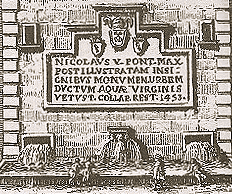 NICOLAVS V. PONT. MAX.
POST ILLVSTRATAM INSI
GNIBVS MONVMEN. VRBEM
DVCTVM AQVÆ VIRGINIS
VETVST. COLLAB. REST. 1453.